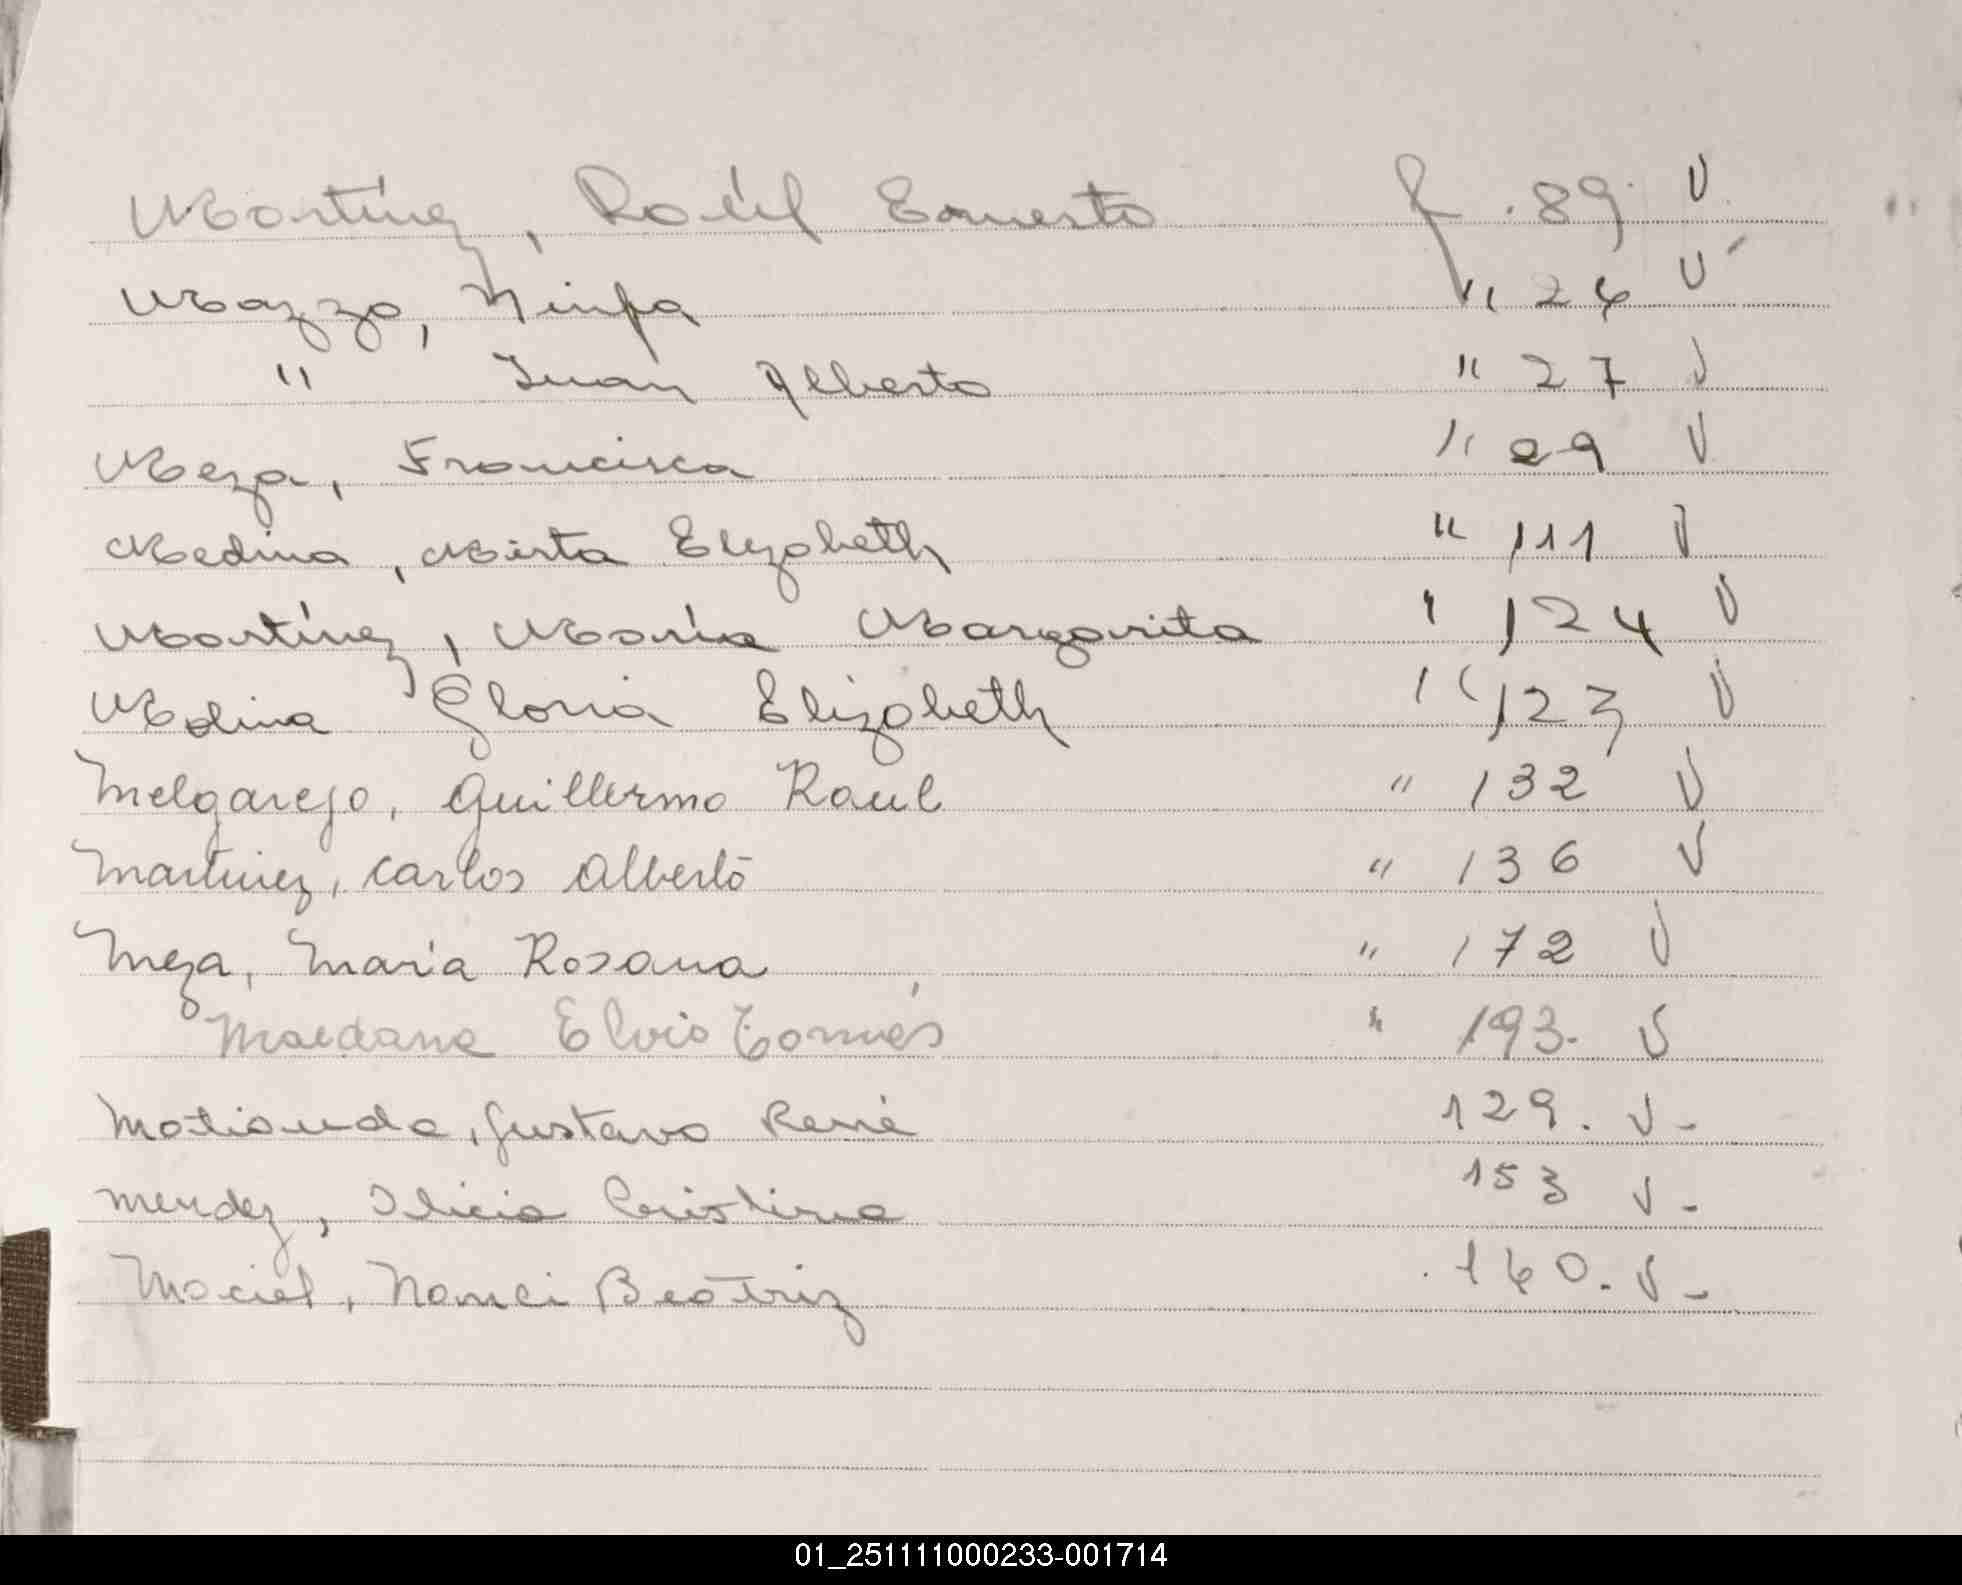 Martínez, Raúl Ernesto f. 89 V
Mazzo, Ninfa " 26 V
" Juan Alberto " 27 V
Meza, Francisca " 29 V
Medina, Mirta Elizabeth " 111 V
Martínez, María Margarita " 124 V
Molina Gloria Elizabeth " 123 V
Melgarejo, Guillermo Raul " 132 V
Martinez, Carlos Alberto " 136 V
Meza, María Rosana " 172 V
Maidana Elvio Tomás " 193. V
Gustavo René 129. V -
Mendez, Ilicia Cristina 153 V -
Maciel, Nanci Beatriz 160. V -
01_251111000233-001714